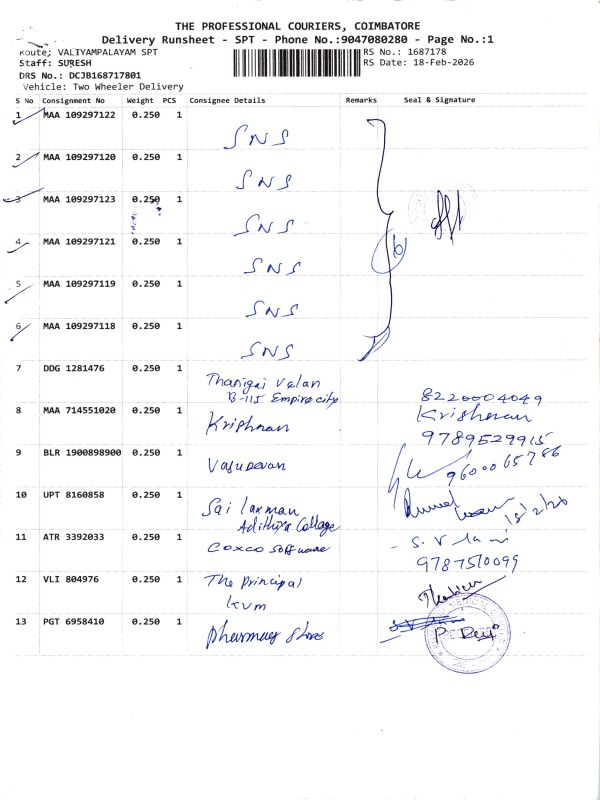 THE PROFESSIONAL COURIERS, COIMBATORE
Delivery Runsheet - SPT - Phone No.:9047080280 - Page No.:1
Route: VALIYAMPALAYAM SPT
RS No.: 1687178
Staff: SURESH
RS Date: 18-Feb-2026
DRS No.: DCJB168717801
Vehicle: Two Wheeler Delivery
S No Consignment No Weight PCS Consignee Details Remarks Seal & Signature
1 MAA 109297122 0.250 1
SNS
2 MAA 109297120 0.250 1
SNS
3 MAA 109297123 0.250 1
SNS
4 MAA 109297121 0.250 1
SNS
6
5 MAA 109297119 0.250 1
SNS
6 MAA 109297118 0.250 1
SNS
7 DDG 1281476 0.250 1
Thanigai Velan
B-115 Empire city
8220004049
8 MAA 714551020 0.250 1
Krishnan
Krishnan
9789529915
9 BLR 1900898900 0.250 1
Vasudevan
9600065786
10 UPT 8160858 0.250 1
Sai Laxman
Adithya College
18/2/26
11 ATR 3392033 0.250 1
Coxco Software
9787510099
12 VLI 804976 0.250 1
The principal
KVM
13 PGT 6958410 0.250 1
pharmacy store
P. Devi